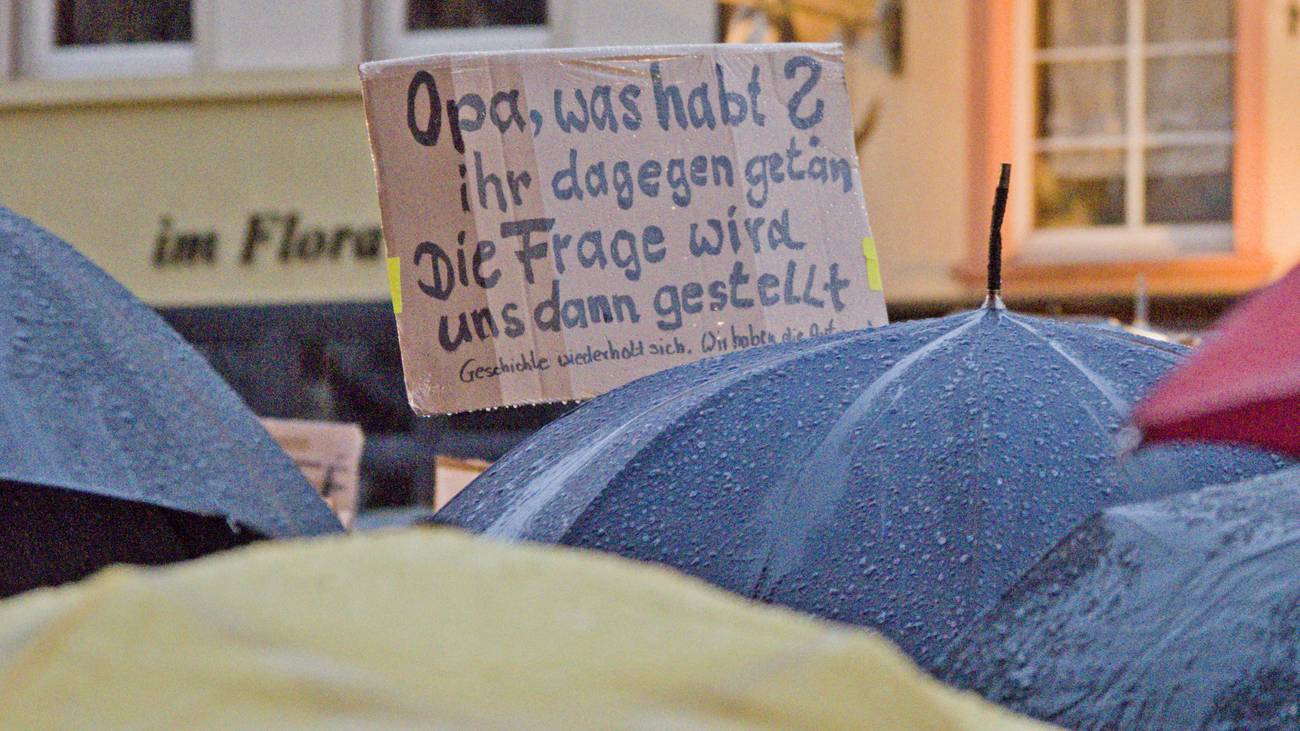 Opa, was habt ?
ihr dagegen getan
Die Frage wird
uns dann gestellt
Geschichte wiederholt sich. Wir haben die
im Flora